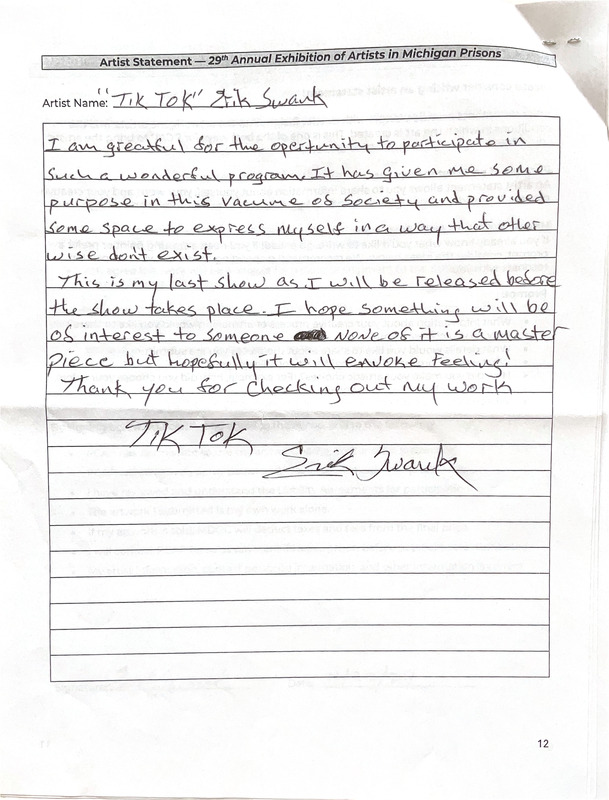 Artist Statement — 29th Annual Exhibition of Artists in Michigan Prisons
Artist Name: "TIK TOK" Erik Swank
I am greatful for the opertunity to participate in
such a wonderful program. It has given me some
purpose in this vacume of society and provided
some space to express myself in a way that other
wise dont exist.
This is my last show as I will be released before
the show takes place. I hope something will be
of interest to someone NONE of it is a master
piece but hopefully it will envoke feeling!
Thank you for checking out my work
TIK TOK
Erik Swank
12